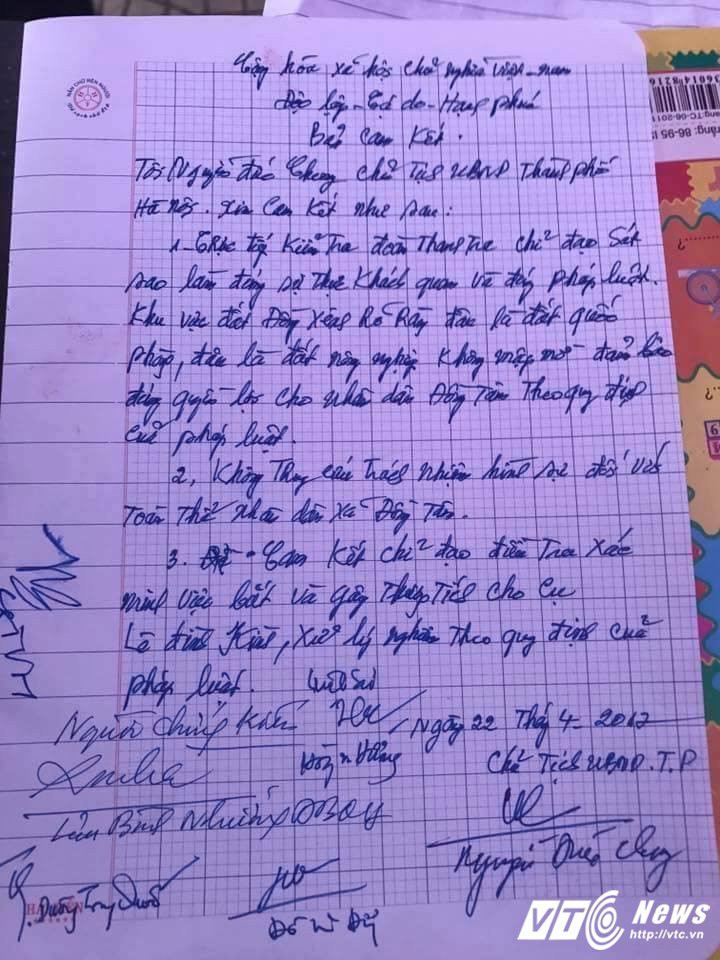 Cộng hòa xã hội chủ nghĩa Việt-nam
Độc lập-Tự do-Hạnh phúc
Bản Cam Kết.
Tôi Nguyễn Đức Chung Chủ Tịch UBND Thành phố
Hà Nội. Xin Cam Kết như sau:
1-Trực tiếp Kiểm Tra đoàn Thanh Tra chỉ đạo Sát
sao làm đúng sự thực khách quan và đúng pháp luật.
Khu vực đất Đồng Xênh Rõ Ràng đâu là đất quốc
phòng, đâu là đất nông nghiệp không mập mờ đảm bảo
đúng quyền lợi cho nhân dân Đồng Tâm Theo quy định
của pháp luật.
2, Không Truy cứu trách nhiệm hình sự đối với
Toàn Thể nhân dân xã Đồng Tâm.
3. Cam Kết chỉ đạo điều Tra Xác
minh việc bắt và gây Thương Tích cho Cụ
Lê đình Kình, Xử lý nghiêm Theo quy định của
pháp luật. Luật Sư
Người Chứng Kiến
Ngày 22 Tháng 4-2017
Chủ Tịch UBND.T.P
Lưu Bình Nhưỡng ĐBQH
Nguyễn Đức Chung
Dương Trung Quốc
HẢI TIẾN
VTC News
http://vtc.vn